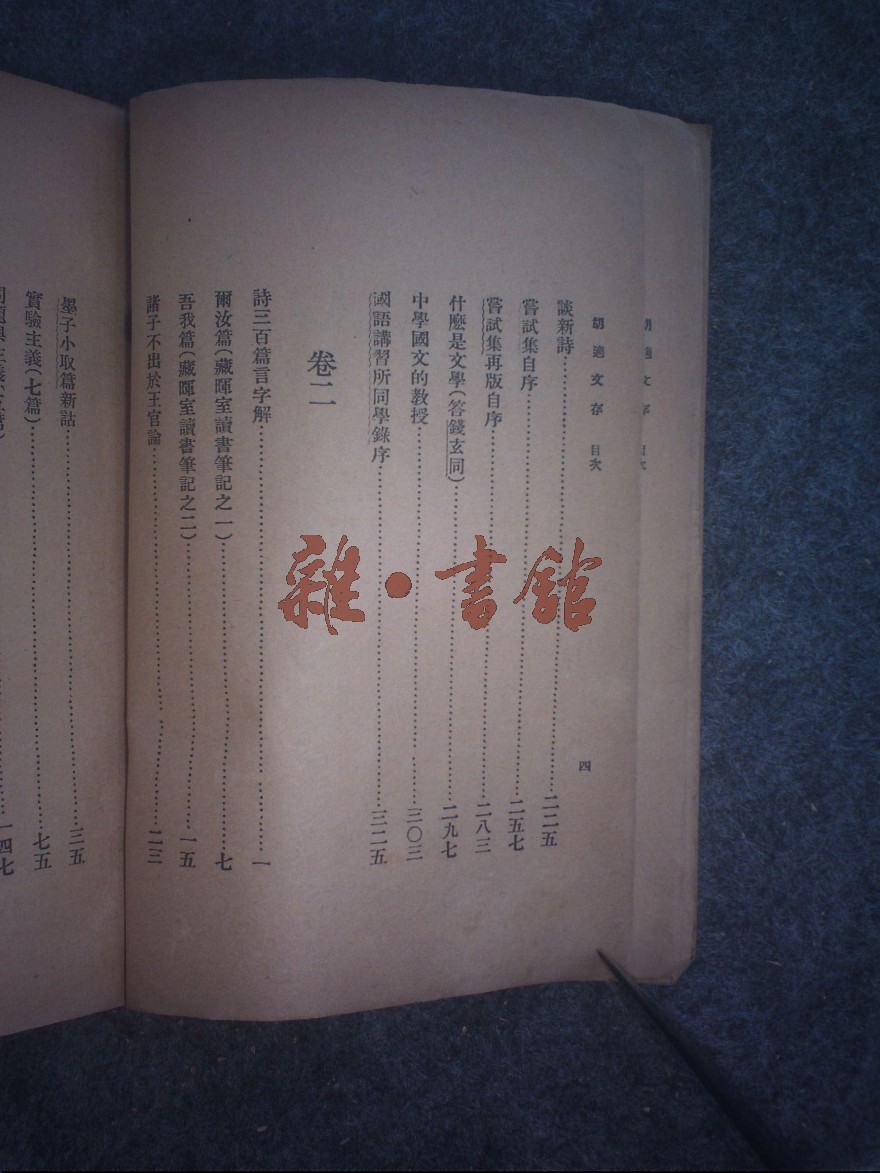 胡適文存 目次
四
談新詩……二二五
嘗試集自序……二五七
嘗試集再版自序……二八三
什麽是文學(答錢玄同)……二九七
中學國文的教授……三〇三
國語講習所同學錄序……三二五
卷二
詩三百篇言字解……一
爾汝篇(藏暉室讀書筆記之一)……七
吾我篇(藏暉室讀書筆記之二)……一五
諸子不出於王官論……二三
墨子小取篇新詁……三五
實驗主義(七篇)……七五
一四七
雜·書館